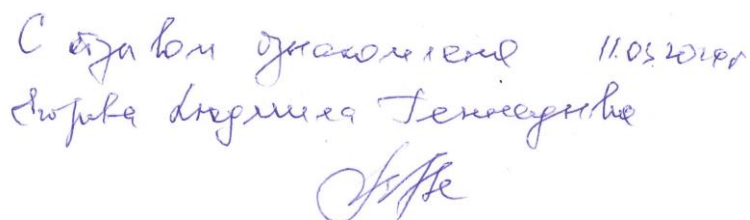 С отзывом ознакомлена 11.03.2020г
Людмила Геннадьевна